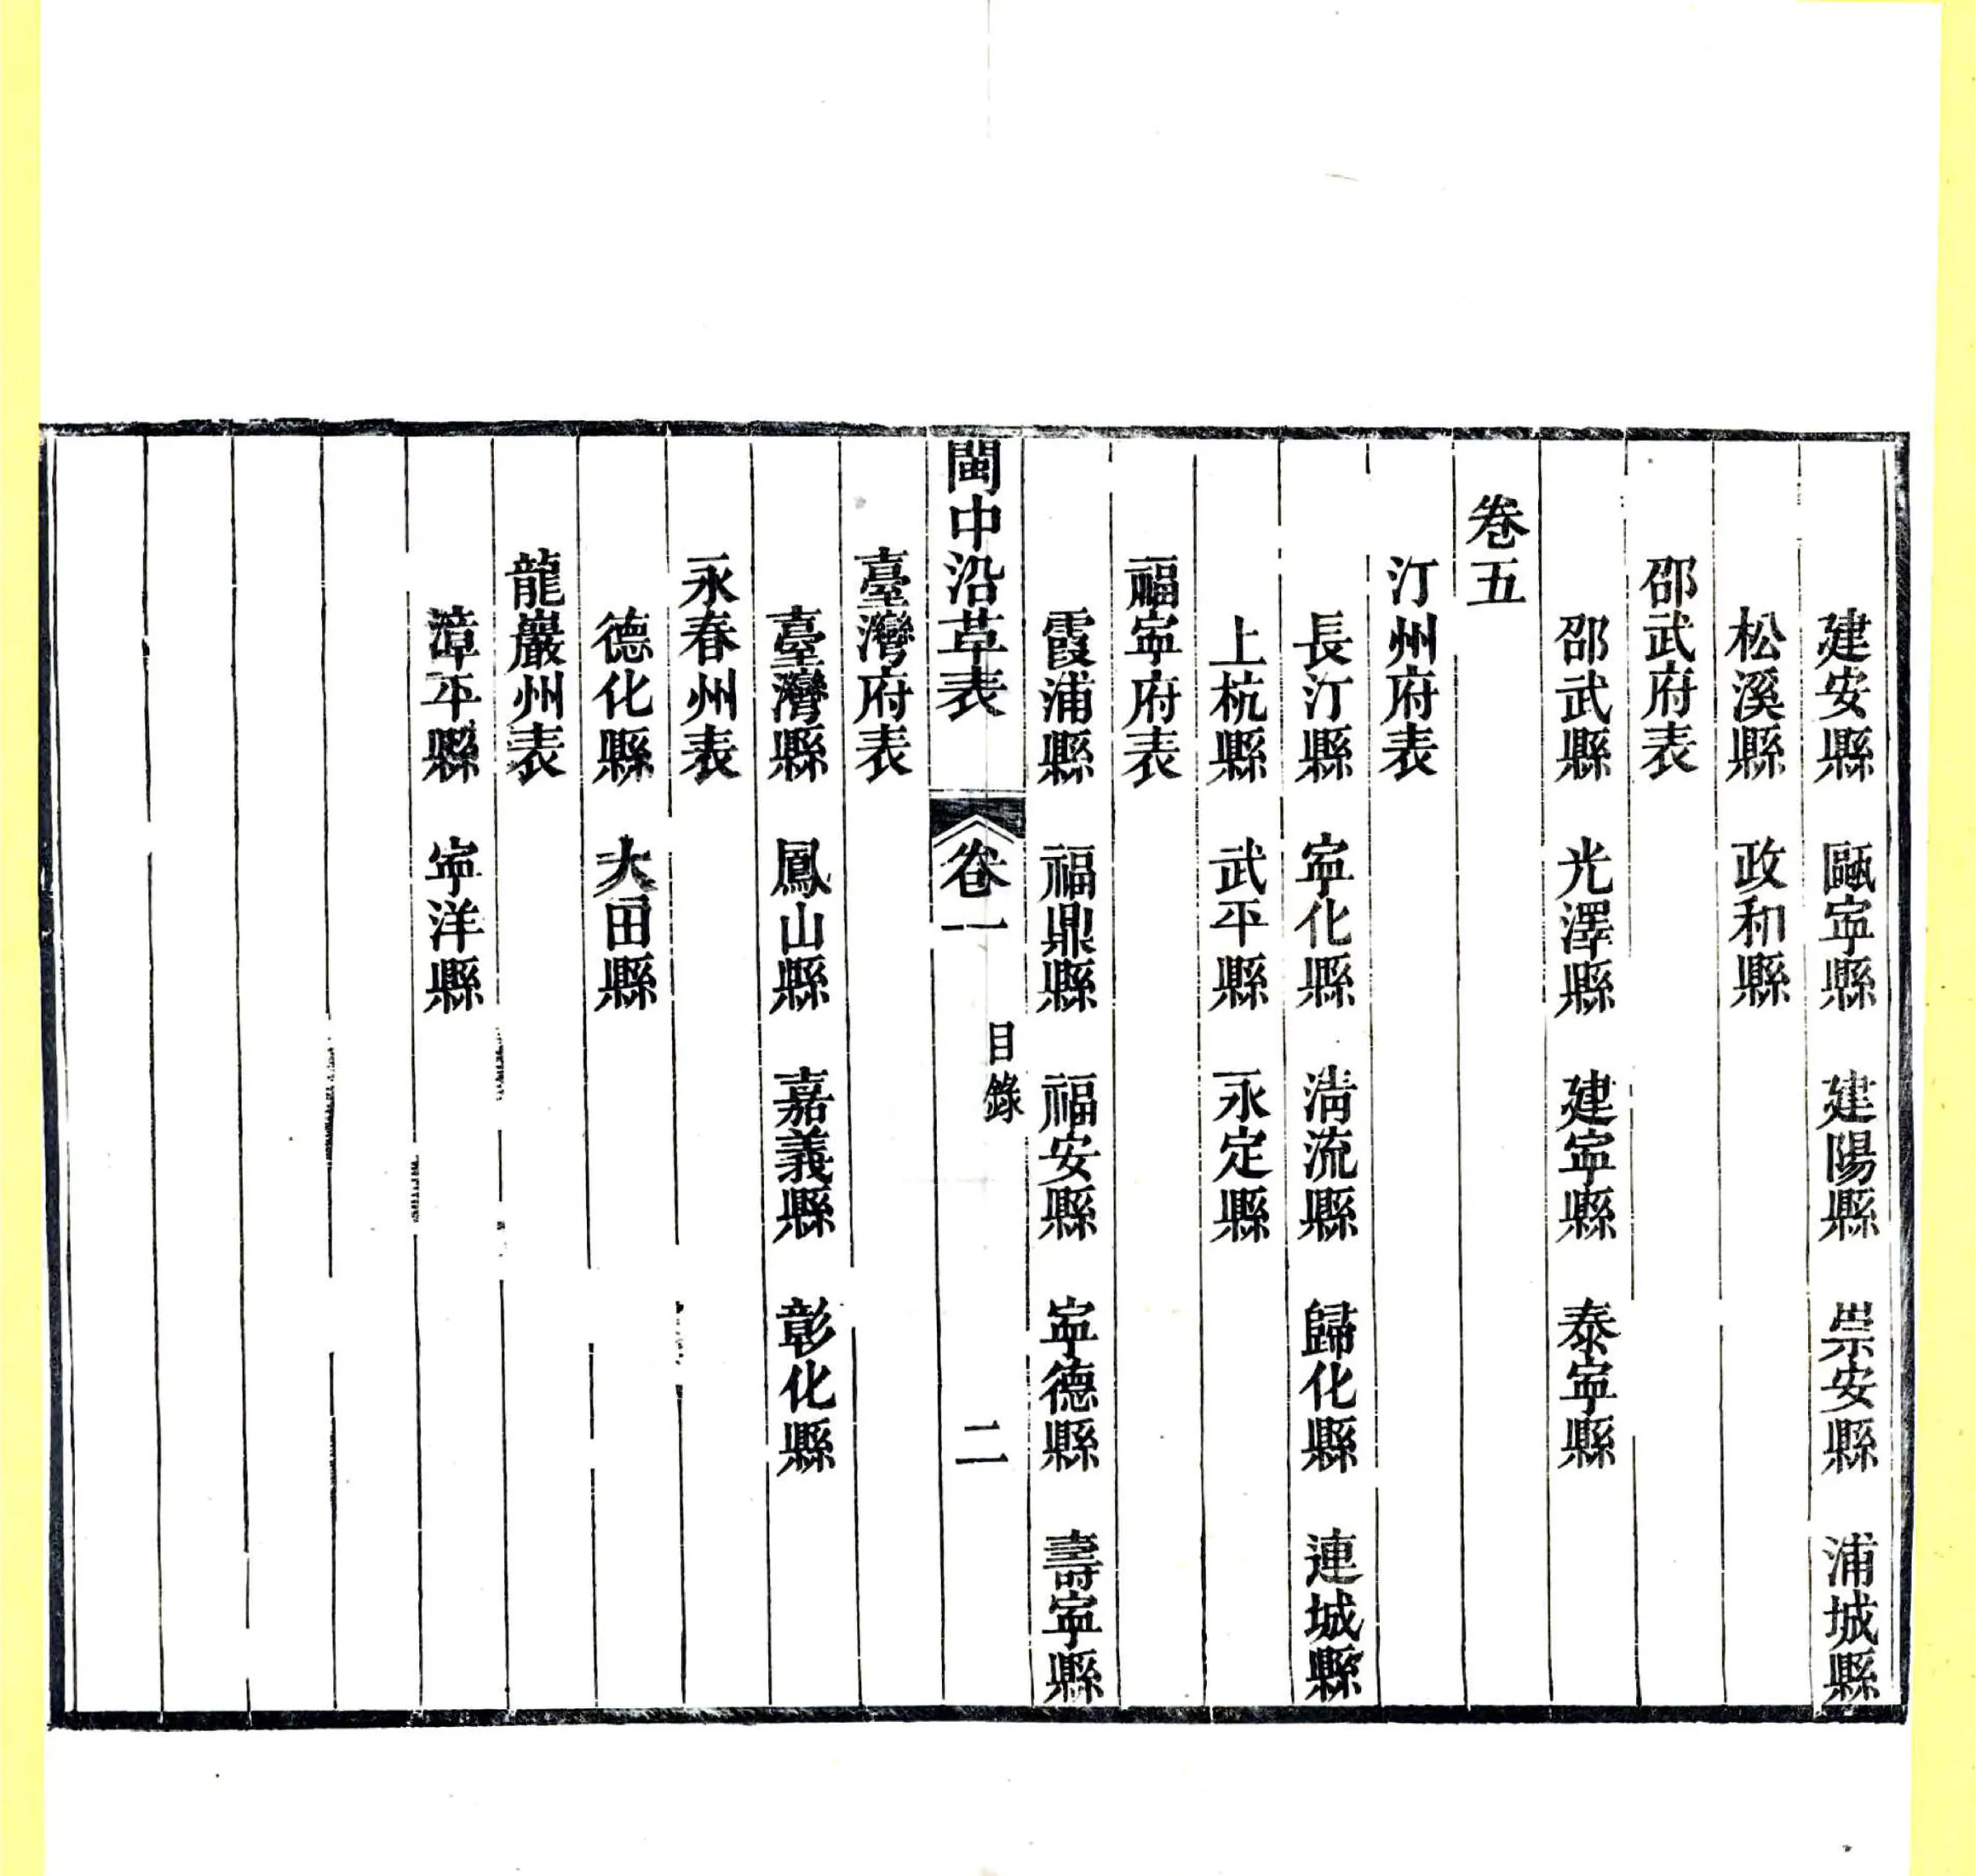 建安縣　甌寍縣　建陽縣　崇安縣　浦城縣
松溪縣　政和縣
邵武府表
邵武縣　光澤縣　建寍縣　泰寍縣
卷五
汀州府表
長汀縣　寍化縣　淸流縣　歸化縣　連城縣
上杭縣　武平縣　永定縣
福寍府表
霞浦縣　福鼎縣　福安縣　寍德縣　壽寍縣
閩中沿革表　卷一　目錄　二
臺灣府表
臺灣縣　鳳山縣　嘉義縣　彰化縣
永春州表
德化縣　大田縣
龍巖州表
漳平縣　寍洋縣